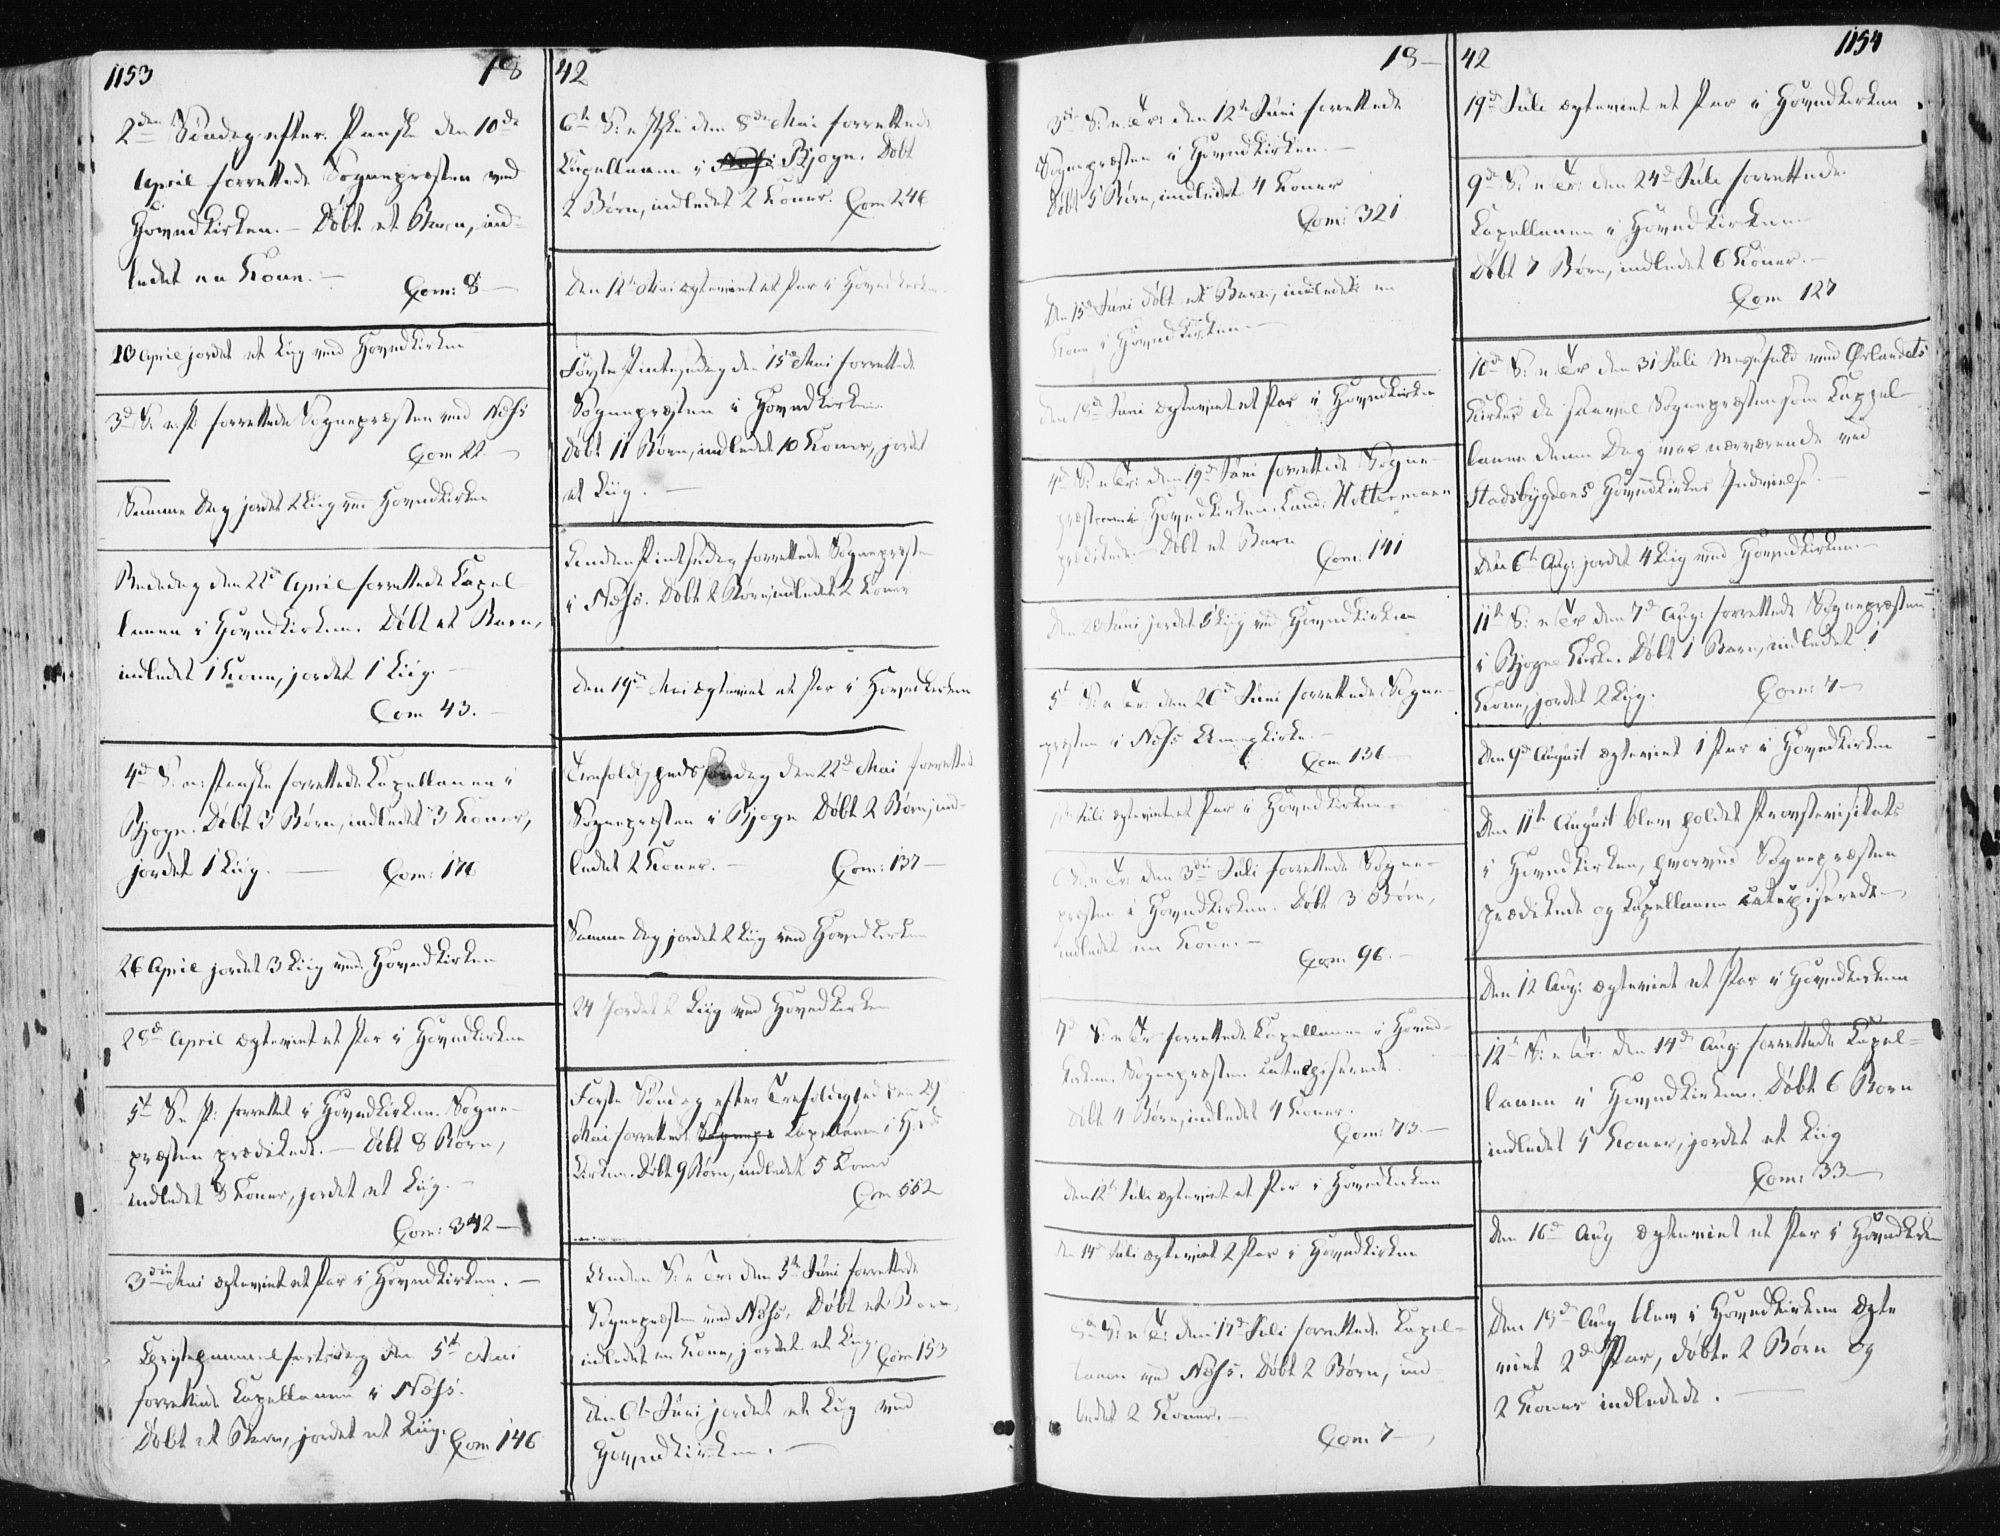 1153
18 42
2den Söndag efter Paaske den 10de
April forrettede Sognepræsten ved
Hovedkirken. – Döbt et Barn, ind-
ledet en Kone. –
Com: 8 –
10 April jordet et Liig ved Hovedkirken
3d S: e: P: forrettede Sognepræsten ved Næss
Com 22 –
Samme Dag jordet 2 Liig ved Hovedkirken
Bededag den 22d April forrettede Capel-
lanen i Hovedkirken. Döbt et Barn,
indledet 1 Kone, jordet 1 Liig. –
Com 43. –
4d S: e: Paaske forrettede Kapellanen i
Bjogn. Döbt 3 Börn, indledet 3 Koner,
jordet 1 Liig. – Com: 176
26 April jordet 3 Liig ved Hovedkirken
28d April ægteviet et Par i Hovedkirken
5t S: e P: forrettet i Hovedkirken. Sogne-
præsten prædikede. – Döbt 8 Börn,
indledet 8 Koner, jordet et Liig. –
Com: 342 –
3die Mai ægteviet et Par i Hovedkirken. –
Christihimmelfartsdag den 5t Mai
forrettede Capellanen i Næss.
Döbt et Barn, jordet et Liig. Com 146
6te S: e Paaske den 8de Mai forrettede
Capellanen i Næss Bjogn. Döbt
2 Börn, indledet 2 Koner. Com 246
Den 12te Mai ægteviet et Par i Hovedkirken
Förste Pintsedag den 15de Mai forrettede
Sognepræsten i Hovedkirken.
Döbt 11 Börn, indledet 10 Koner, jordet
et Liig. –
Anden Pintsedag forrettede Sognepræsten
i Næss. Döbt 2 Börn, indledet 2 Koner
Den 19de Mai ægteviet et Par i Hovedkirken
Trefoldighedssöndag den 22d Mai forrettede
Sognepræsten i Bjogn Döbt 2 Börn, ind-
ledet 2 Koner. – Com: 137 –
Samme Dag jordet 2 Liig ved Hovedkirken
24 Jordet 2 Liig ved Hovedkirken
Förste Söndag efter Trefoldighed den 29
Mai forrettede Sognepr Capellanen i Hoved
kirken. Döbt 9 Börn, indledet 5 Koner
Com 552
Anden S: e Tr: den 5te Juni forrettede
Sognepræsten ved Næss. Döbt et Barn,
indledet en Kone, jordet et Liig. Com 153
Den 6te Juni jordet et Liig ved
Hovedkirken. –
18 – 42
1154
3die S: e: Tr: den 12te Juni forrettede
Sognepræsten i Hovedkirken. –
Döbt 5 Börn, indledet 4 Koner
Com: 321
Den 15de Juni döbt et Barn, indledet en
Kone i Hovedkirken. –
Den 18de Juni ægteviet et Par i Hovedkirken
4de S: e Tr: den 19de Juni forrettede Sogne-
præsten i Hovedkirken. Cand:
prædikede. – Döbt et Barn
Com: 141
Den Juni jordet 5 Liig ved Hovedkirken
5t S: e Tr: den 26d Juni forrettede Sogne-
præsten i Næss Annexkirke. –
Com 136 –
Juli ægteviet et Par i Hovedkirken –
6 S: e Tr: den 3die Juli forrettede Sogne-
præsten i Hovedkirken. Döbt 3 Börn,
indledet en Kone. –
Com 96. –
7d S: e Tr forrettede Capellanen i Hoved-
kirken. Sognepræsten catechiserede.
Döbt 4 Börn, indledet 4 Koner.
Com: 73 –
Den 12te Juli ægteviet et Par i Hovedkirken
Den 14 Juli ægteviet 2 Par i Hovedkirken
8de S: e Tr: den 17de Juli forrettede Capel-
lanen ved Næss. Döbt 2 Börn, ind
ledet 2 Koner. –
Com: 7 –
19d Juli ægteviet et Par i Hovedkirken.
9de S: e Tr: den 24d Juli forrettede
Capellanen i Hovedkirken. –
Döbt 7 Börn, indledet 6 Koner. –
Com 127
10de S: e: Tr den 31 Juli Messefald ved Ørlandets
Kirker da saavel Sognepræsten som Cappel-
lanen denne Dag var nærværende ved
Stadsbygdens Hovedkirkes Indvielse. –
Den 6te Aug: jordet 4 Liig ved Hovedkirken. –
11te S: e Tr den 7d Aug: forrettede Sognepræsten
i Bjogns Kirke. Döbt 1 Barn, indledet 1
Kone, jordet 2 Liig. Com: 4 –
Den 9d August ægteviet 1 Par i Hovedkirken
Den 11te August blev holdet Provstevisitats
i Hovedkirken, hvorved Sognepræsten
prædikede og Capellanen catechiserede –
Den 12 Aug: ægteviet et Par i Hovedkirken
12te S: e Tr: den 14d Aug: forrettede Capel-
lanen i Hovedkirken. Döbt 6 Börn
indledet 5 Koner, jordet et Liig
Com: 33 –
Den 16d Aug ægteviet et Par i Hovedkirken
Den 18d Aug blev i Hovedkirken ægte
viet 2d Par, döbte 2 Börn og
2 Koner indledede. –